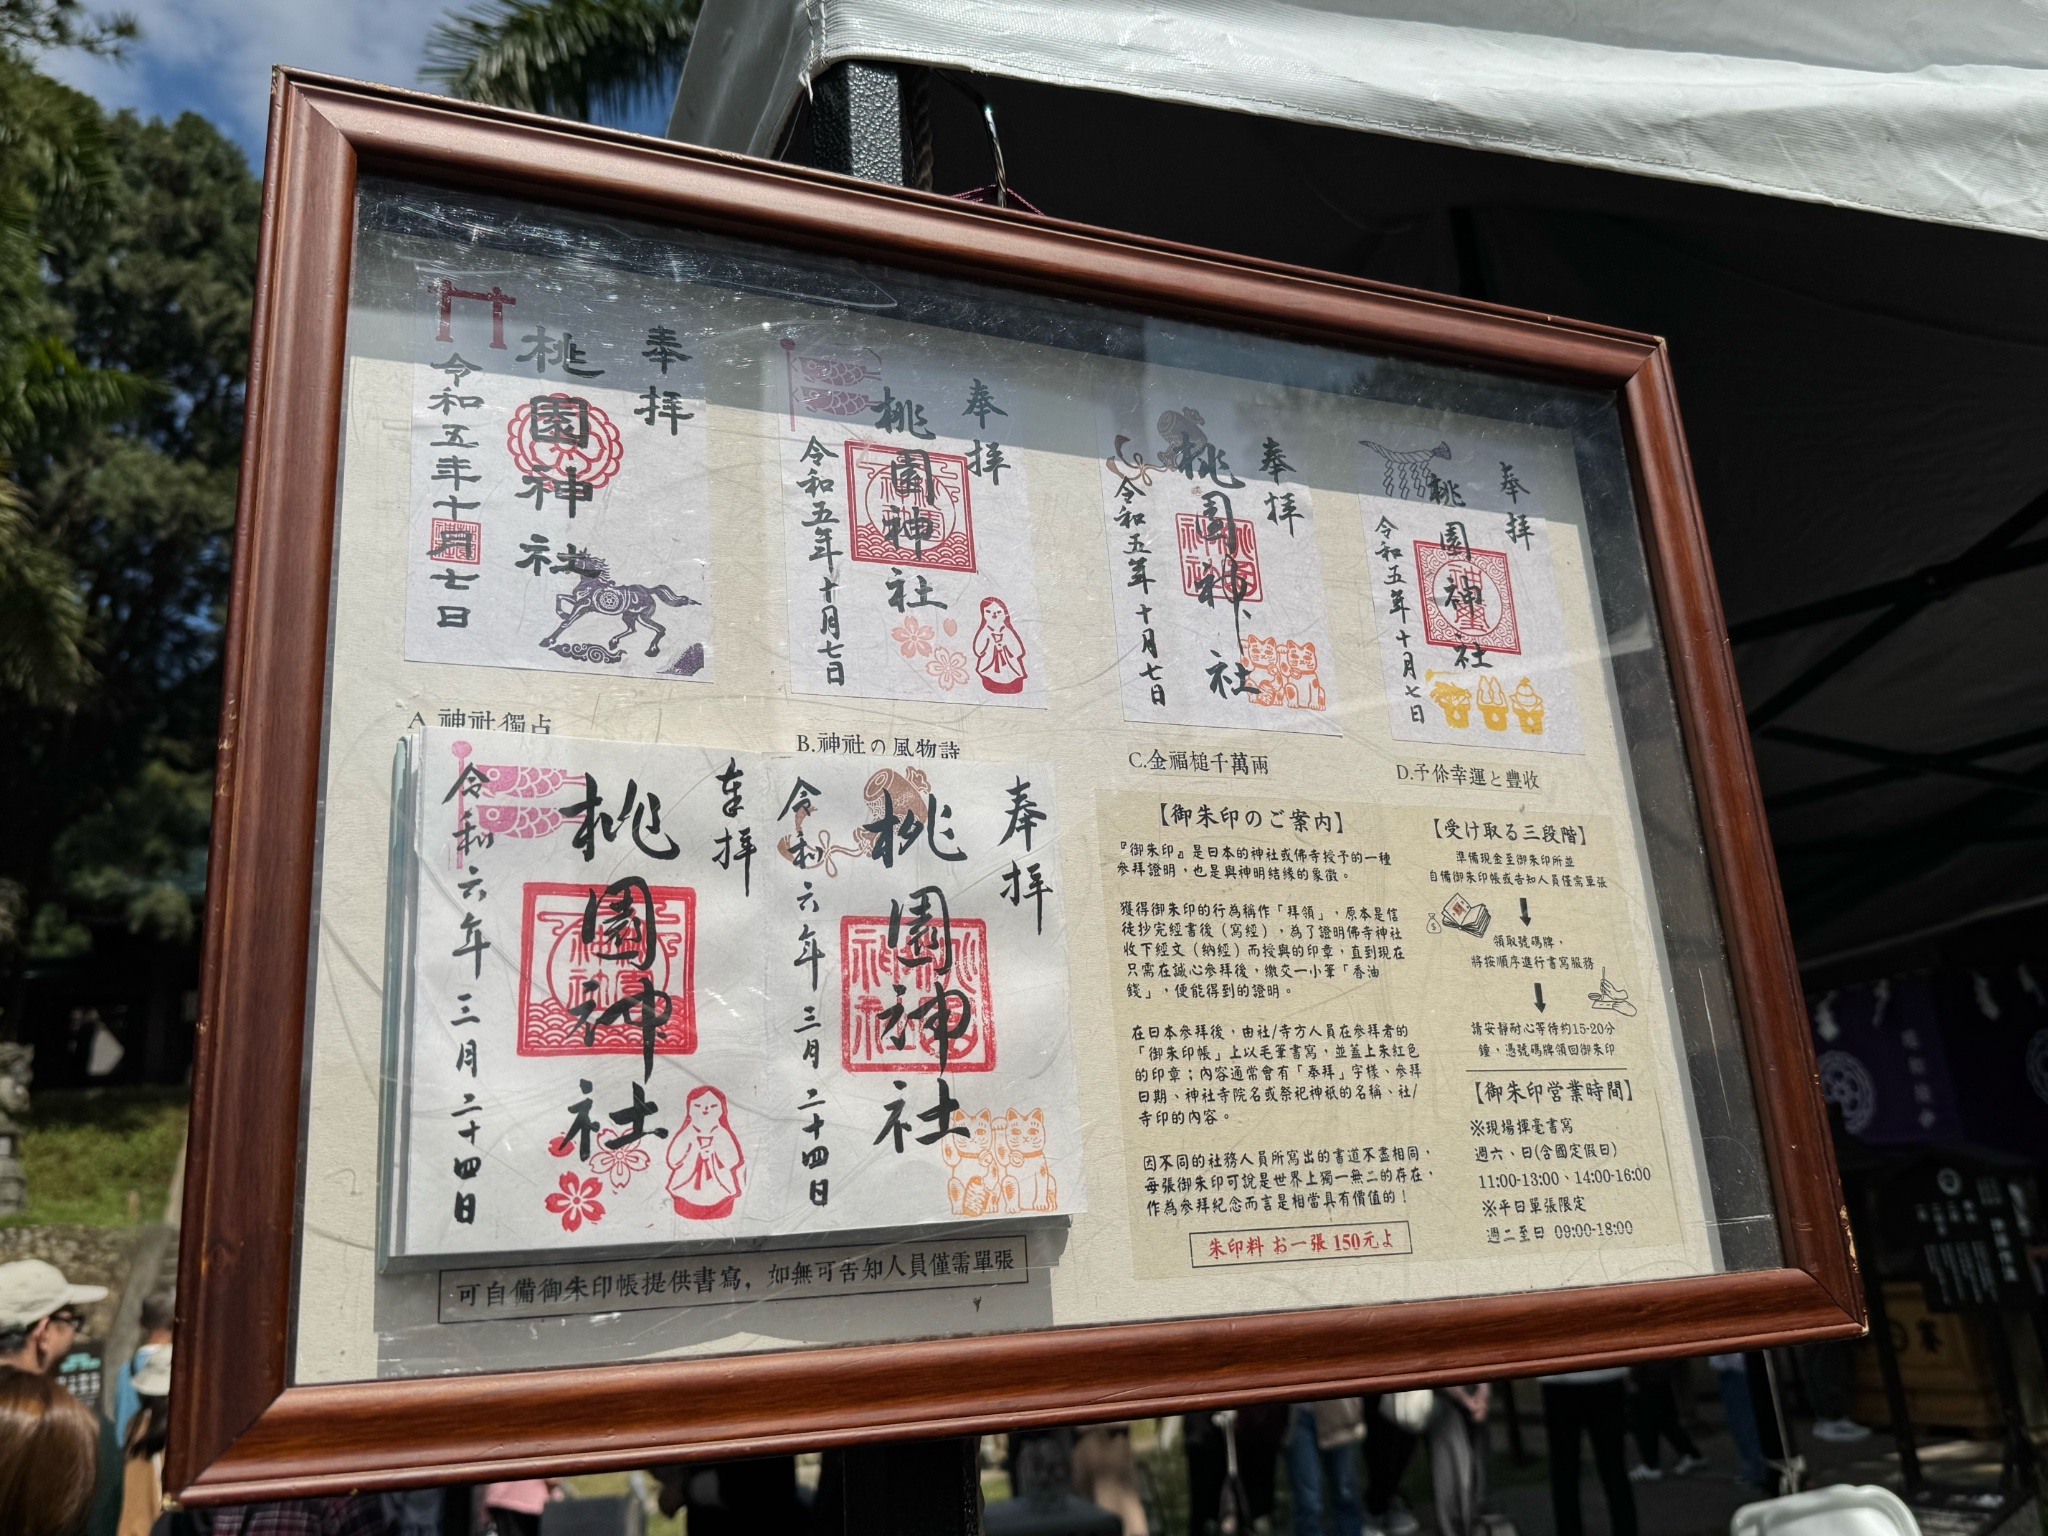 奉拝
桃園神社
令和五年十月七日
A.神社獨占
奉拝
桃園神社
令和五年十月七日
B.神社の風物詩
奉拝
桃園神社
令和五年十月七日
C.金福槌千萬兩
奉拝
桃園神社
令和五年十月七日
D.予你幸運と豐收
奉拝
桃園神社
令和六年三月二十四日
奉拝
桃園神社
令和六年三月二十四日
可自備御朱印帳提供書寫，如無可告知人員僅需單張
【御朱印のご案内】
『御朱印』是日本的神社或佛寺授予的一種
參拜證明，也是與神明結緣的象徵。
獲得御朱印的行為稱作「拜領」，原本是信
徒抄完經書後（寫經），為了證明佛寺神社
收下經文（納經）而授與的印章，直到現在
只需在誠心參拜後，繳交一小筆「香油
錢」，便能得到的證明。
在日本參拜後，由社/寺方人員在參拜者的
「御朱印帳」上以毛筆書寫，並蓋上朱紅色
的印章；內容通常會有「奉拜」字樣、參拜
日期、神社寺院名或祭祀神祇的名稱、社/
寺印的內容。
因不同的社務人員所寫出的書道不盡相同，
每張御朱印可說是世界上獨一無二的存在，
作為參拜紀念而言是相當具有價值的！
朱印料 お一張 150元よ
【受け取る三段階】
準備現金至御朱印所並
自備御朱印帳或告知人員僅需單張
領取號碼牌，
將按順序進行書寫服務
請安靜耐心等待約15-20分
鐘，憑號碼牌領回御朱印
【御朱印営業時間】
※現場揮毫書寫
週六、日(含國定假日)
11:00-13:00、14:00-16:00
※平日單張限定
週二至日 09:00-18:00